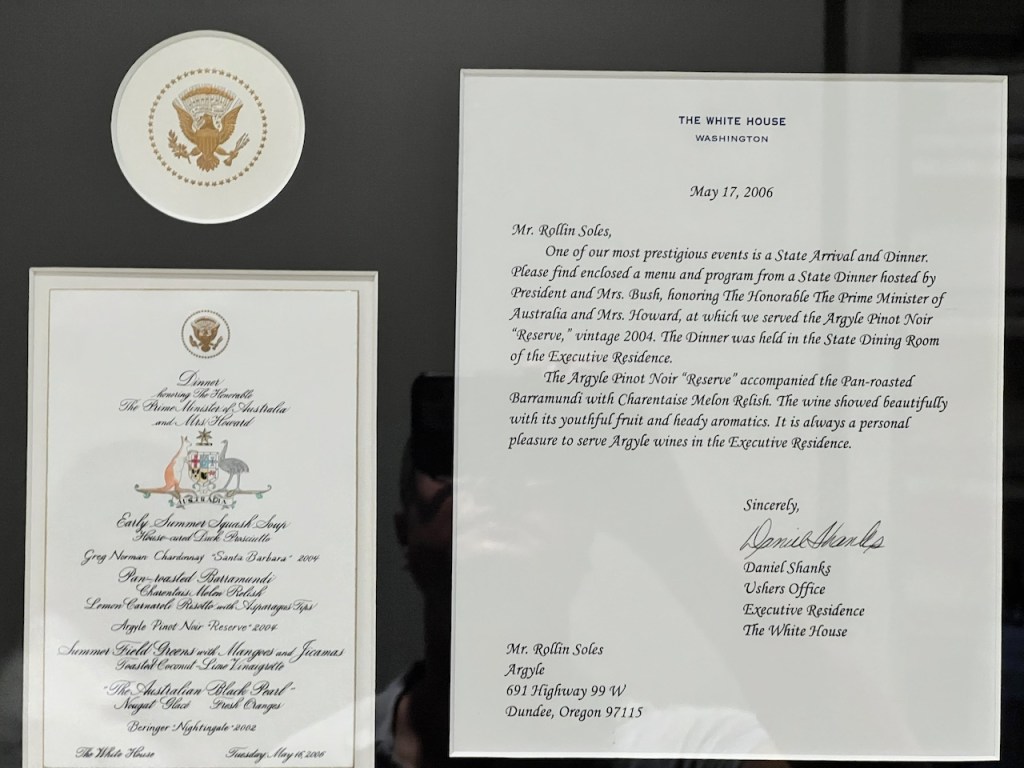 Dinner
honoring The Honorable
The Prime Minister of Australia
and Mrs. Howard
AUSTRALIA
Early Summer Squash Soup
House-cured Duck Prosciutto
Greg Norman Chardonnay "Santa Barbara" 2004
Pan-roasted Barramundi
Charentais Melon Relish
Lemon Carnaroli Risotto with Asparagus Tips
Argyle Pinot Noir "Reserve" 2004
Summer Field Greens with Mangoes and Jicamas
Toasted Coconut-Lime Vinaigrette
"The Australian Black Pearl"
Nougat Glacé Fresh Oranges
Beringer "Nightingale" 2002
The White House Tuesday, May 16, 2006
THE WHITE HOUSE
WASHINGTON
May 17, 2006
Mr. Rollin Soles,
One of our most prestigious events is a State Arrival and Dinner.
Please find enclosed a menu and program from a State Dinner hosted by
President and Mrs. Bush, honoring The Honorable The Prime Minister of
Australia and Mrs. Howard, at which we served the Argyle Pinot Noir
"Reserve," vintage 2004. The Dinner was held in the State Dining Room
of the Executive Residence.
The Argyle Pinot Noir "Reserve" accompanied the Pan-roasted
Barramundi with Charentaise Melon Relish. The wine showed beautifully
with its youthful fruit and heady aromatics. It is always a personal
pleasure to serve Argyle wines in the Executive Residence.
Sincerely,
Daniel Shanks
Daniel Shanks
Ushers Office
Executive Residence
The White House
Mr. Rollin Soles
Argyle
691 Highway 99 W
Dundee, Oregon 97115